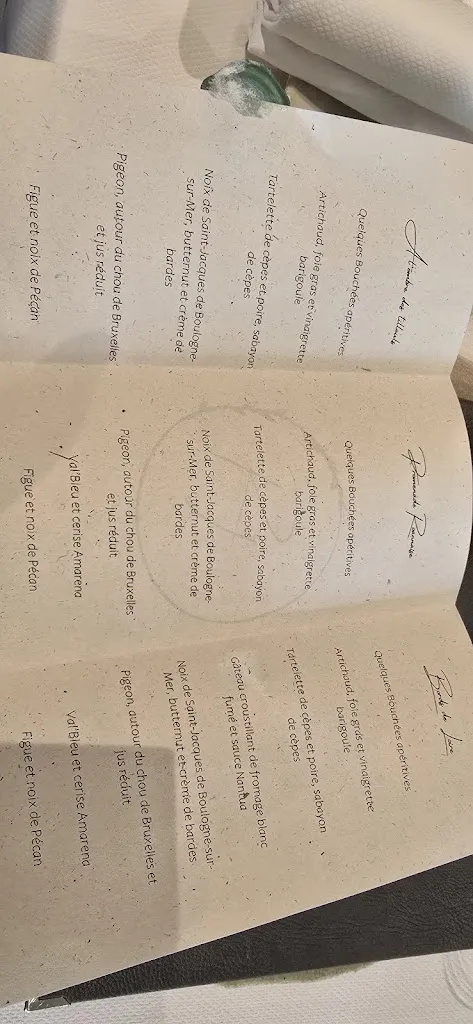 A l'ombre des tilleuls
Quelques Bouchées apéritives
Artichaud, foie gras et vinaigrette
barigoule
Tartelette de cèpes et poire, sabayon
de cèpes
Noix de Saint-Jacques de Boulogne-
sur-Mer, butternut et crème de
bardes
Pigeon, autour du chou de Bruxelles
et jus réduit
Figue et noix de Pécan
Promenade Roannaise
Quelques Bouchées apéritives
Artichaud, foie gras et vinaigrette
barigoule
Tartelette de cèpes et poire, sabayon
de cèpes
Noix de Saint-Jacques de Boulogne-
sur-Mer, butternut et crème de
bardes
Pigeon, autour du chou de Bruxelles
et jus réduit
Val'Bleu et cerise Amarena
Figue et noix de Pécan
Bords de Loire
Quelques Bouchées apéritives
Artichaud, foie gras et vinaigrette
barigoule
Tartelette de cèpes et poire, sabayon
de cèpes
Gâteau croustillant de fromage blanc
fumé et sauce Nantua
Noix de Saint-Jacques de Boulogne-sur-
Mer, butternut et crème de bardes
Pigeon, autour du chou de Bruxelles et
jus réduit
Val'Bleu et cerise Amarena
Figue et noix de Pécan